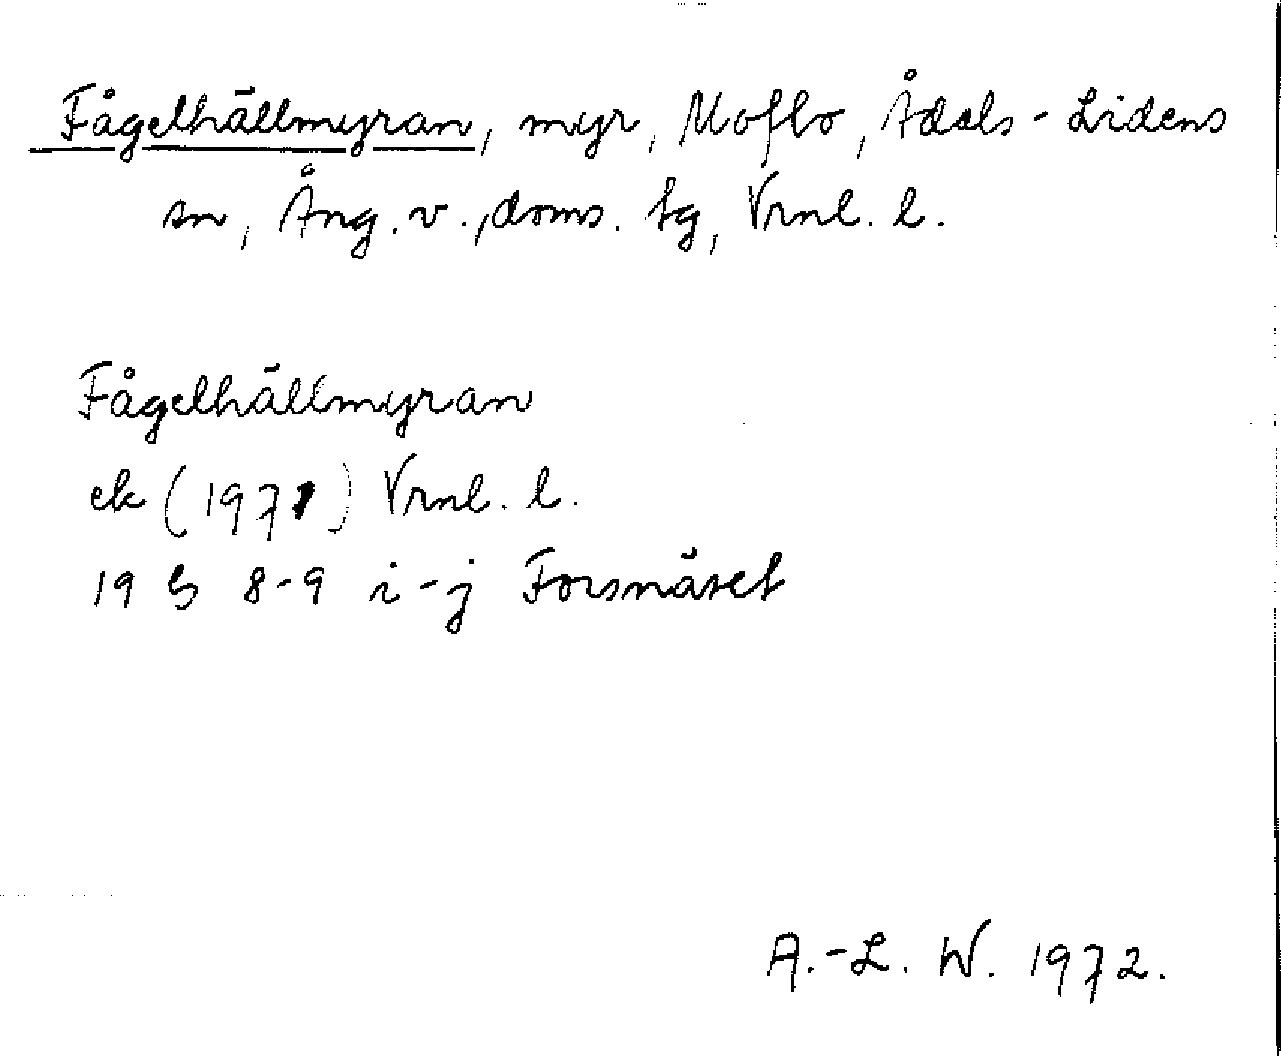 Fågelhällmyran, myr, Moflo, Ådals-Lidens
sn, Ång. v., doms. tg, Vrnl. l.
Fågelhällmyran
ek (1971) Vrnl. l.
19 G 8-9 i-j Forsnäset
A.-L. W. 1972.